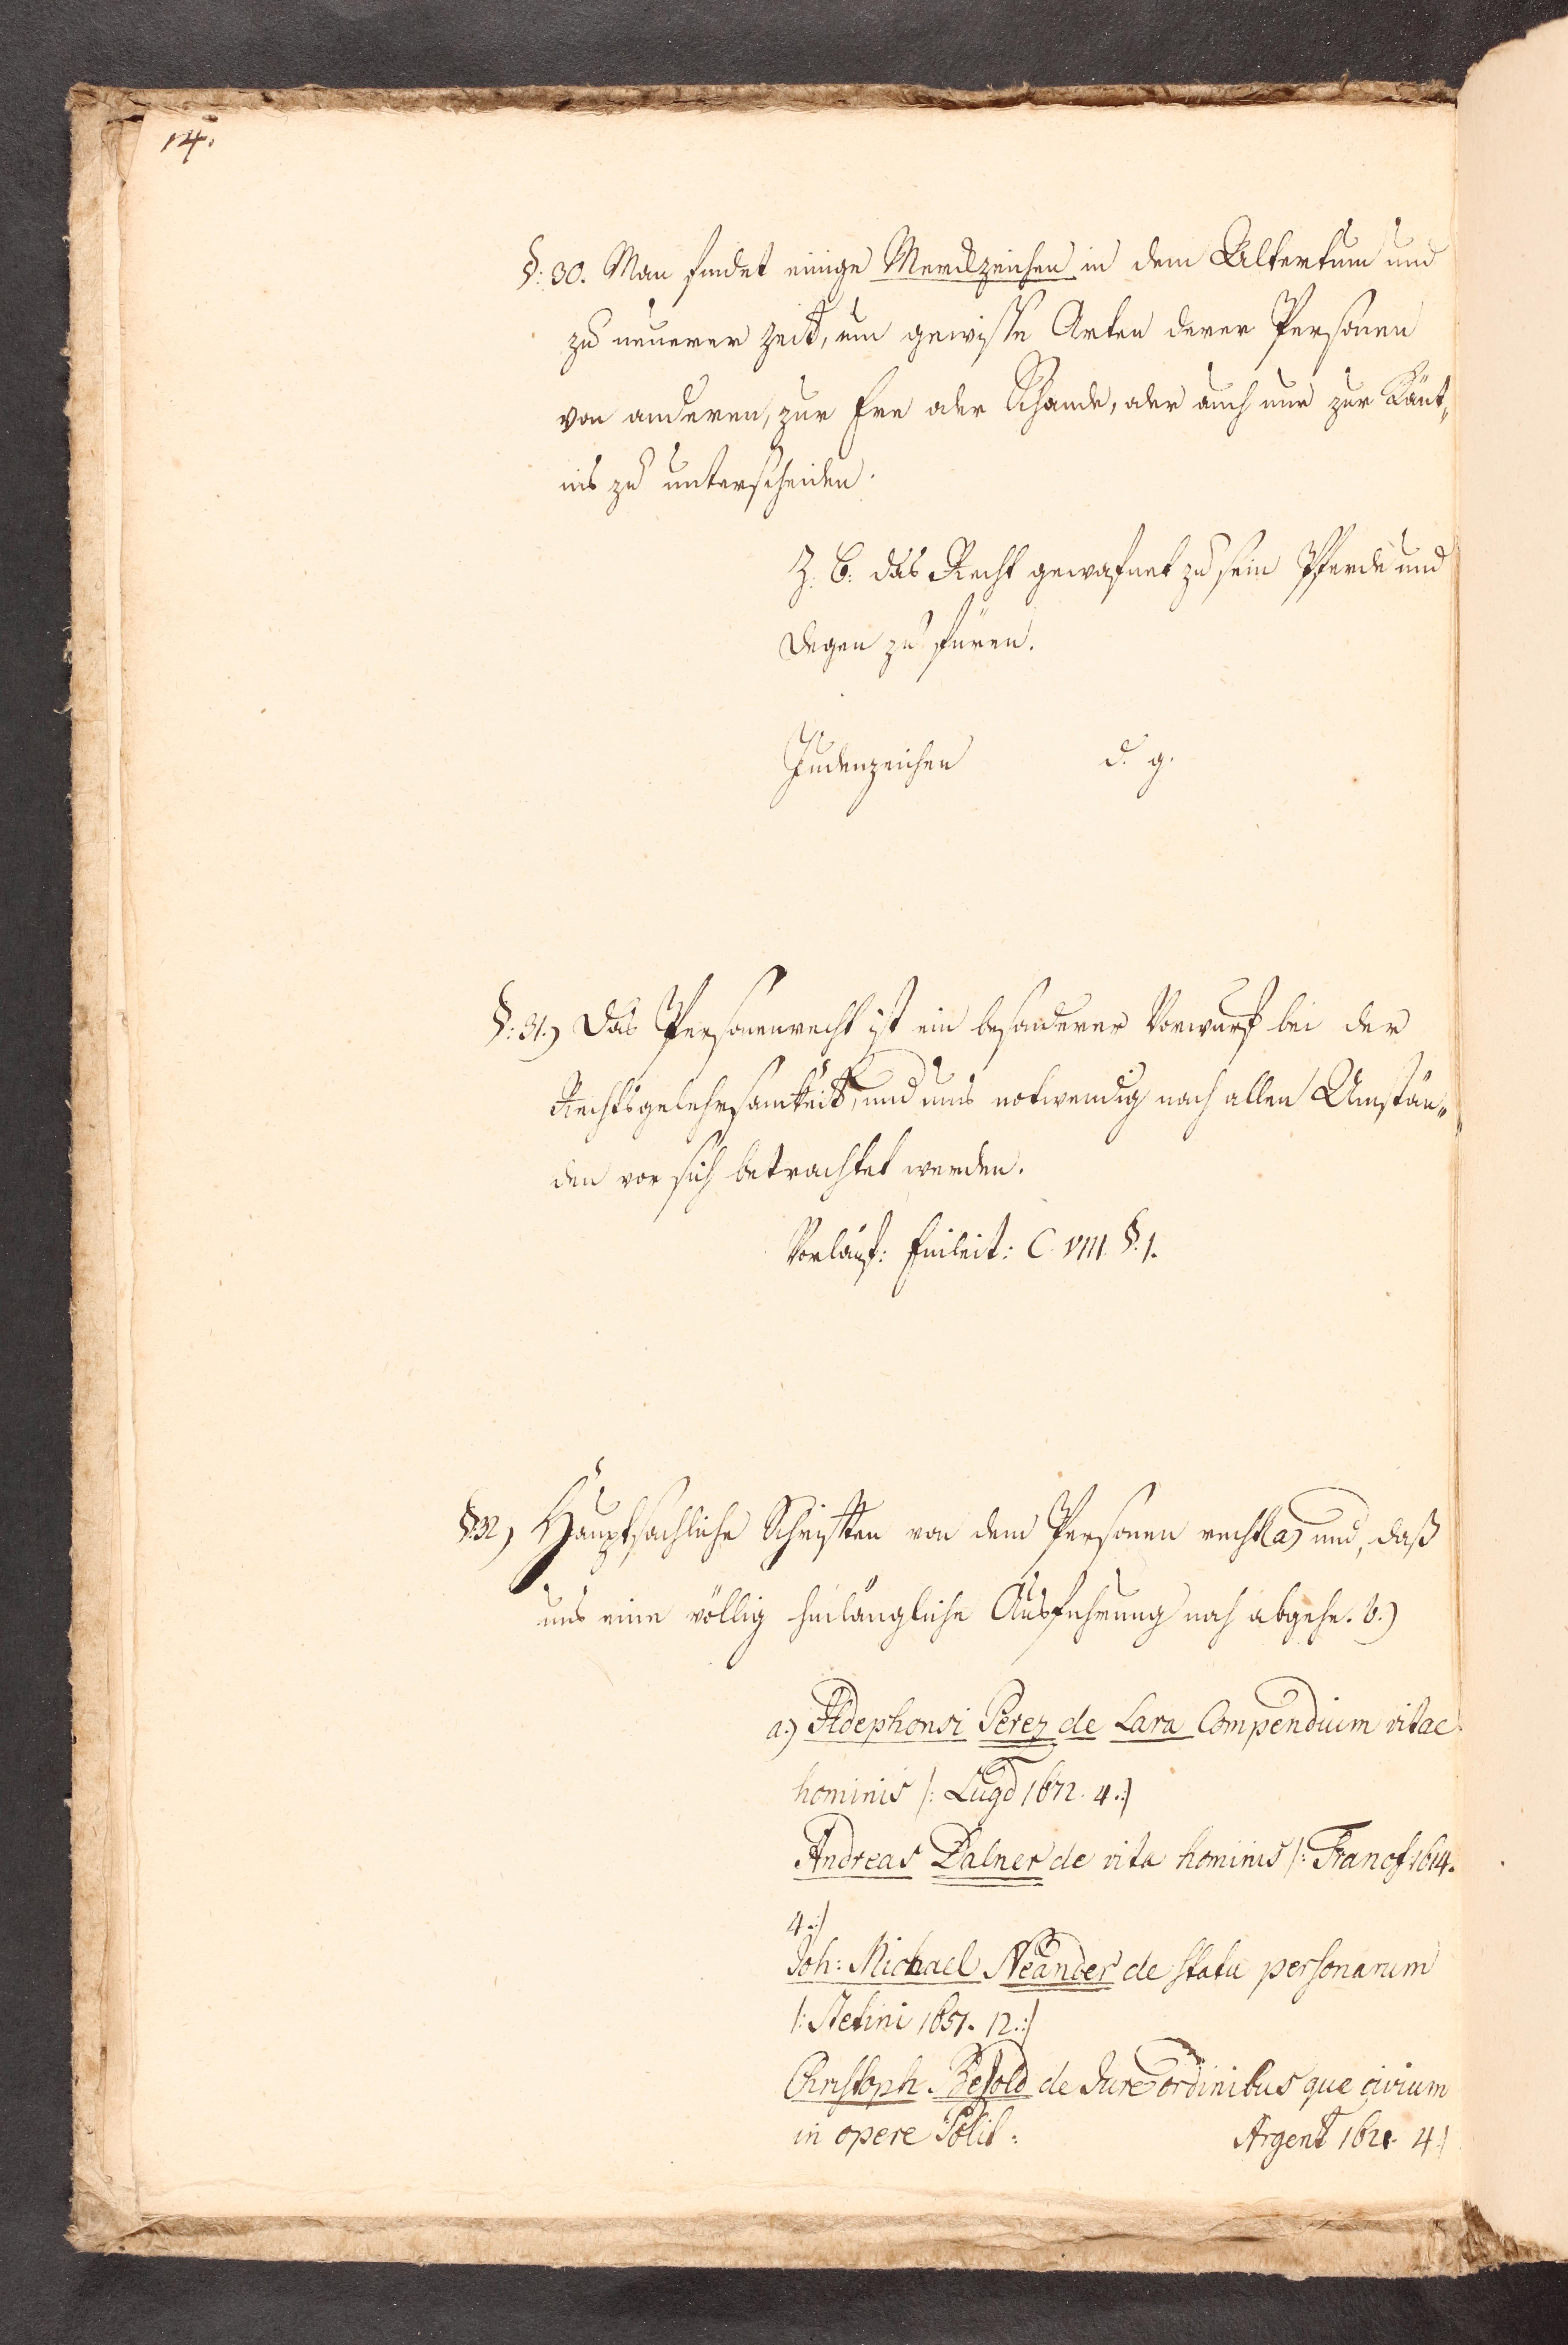 14.
§: 30. Man findet einige Merckzeichen in dem Altertum und
zu neuerer Zeit, um gewisse Arten derer Personen
von anderen, zur Ere oder Schande, oder auch nur zur Känt,,
nis zu unterscheiden.
Z. B. das Recht gewafnet zu sein Pferde und
Degen zu füren.
Judenzeichen d. g.
§: 31.) Das Personenrecht ist ein besonderer Vorwurf bei der
Rechtsgelehrsamkeit, und mus notwendig nach allen Umstän,,
den vor sich betrachtet werden.
Vorläuf: Einleit: C. VIII. §. 1.
§. 32.) Hauptsachliche Schriften von dem Personen recht (a) und, daß
uns eine völlig hinlängliche Ausfuhrung noch abgehe. b.)
a.) Ildephonsi Perez de Lara Compendium vitae
hominis /: Lugd 1672. 4. :/
Andreas Dalner de vita hominis /: Francf 1614.
4. :/
Joh: Michael Neander de statu personarum
/: Stetini 1651. 12. :/
Christoph Besold de Jure ordinibus que civium
in opere Polit: Argent 1621. 4 :/